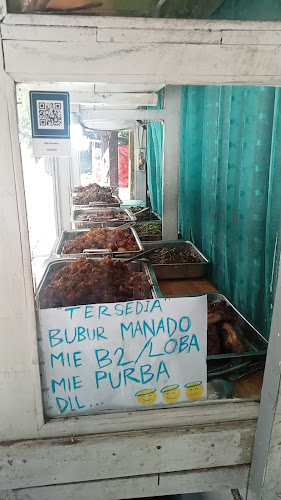 "TERSEDIA"
BUBUR MANADO
MIE B2/LOBA
MIE PURBA
DLL...